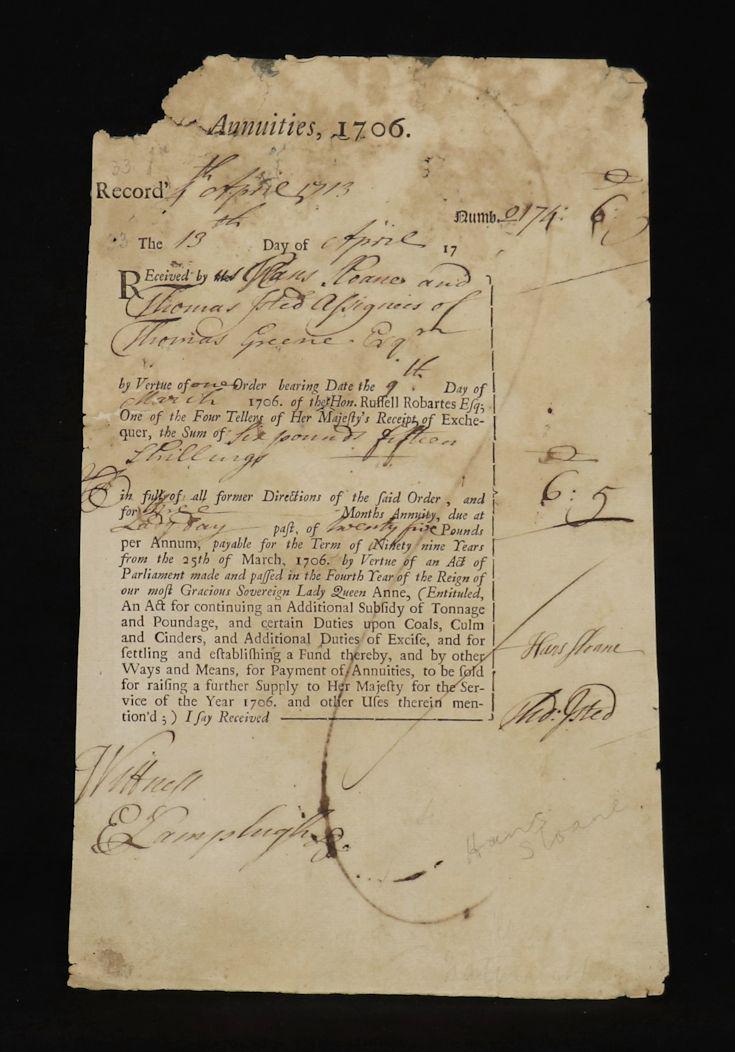 Annuities, 1706.
Record'd 4th April 1713
Numb. 0174:
6:5
The 13th Day of April 17
REceived by us Hans Sloane and
Thomas Isted Assignees of
Thomas Greene Esqr
by Vertue of one Order bearing Date the 9th Day of
March 1706. of the Hon. Russell Robartes Esq;
One of the Four Tellers of Her Majesty's Receipt of Exche-
quer, the Sum of Six pounds fifteen
Shillings
6:5
in full of all former Directions of the said Order, and
for three Months Annuity, due at
Lady Day past, of twenty five Pounds
per Annum, payable for the Term of Ninety nine Years
from the 25th of March, 1706. by Vertue of an Act of
Parliament made and passed in the Fourth Year of the Reign of
our most Gracious Sovereign Lady Queen Anne, (Entituled,
An Act for continuing an Additional Subsidy of Tonnage
and Poundage, and certain Duties upon Coals, Culm
and Cinders, and Additional Duties of Excise, and for
settling and establishing a Fund thereby, and by other
Ways and Means, for Payment of Annuities, to be sold
for raising a further Supply to Her Majesty for the Ser-
vice of the Year 1706. and other Uses therein men-
tion'd;) I say Received
Hans Sloane
Tho: Isted
Wittness
E Lamplugh
Hans
Sloane